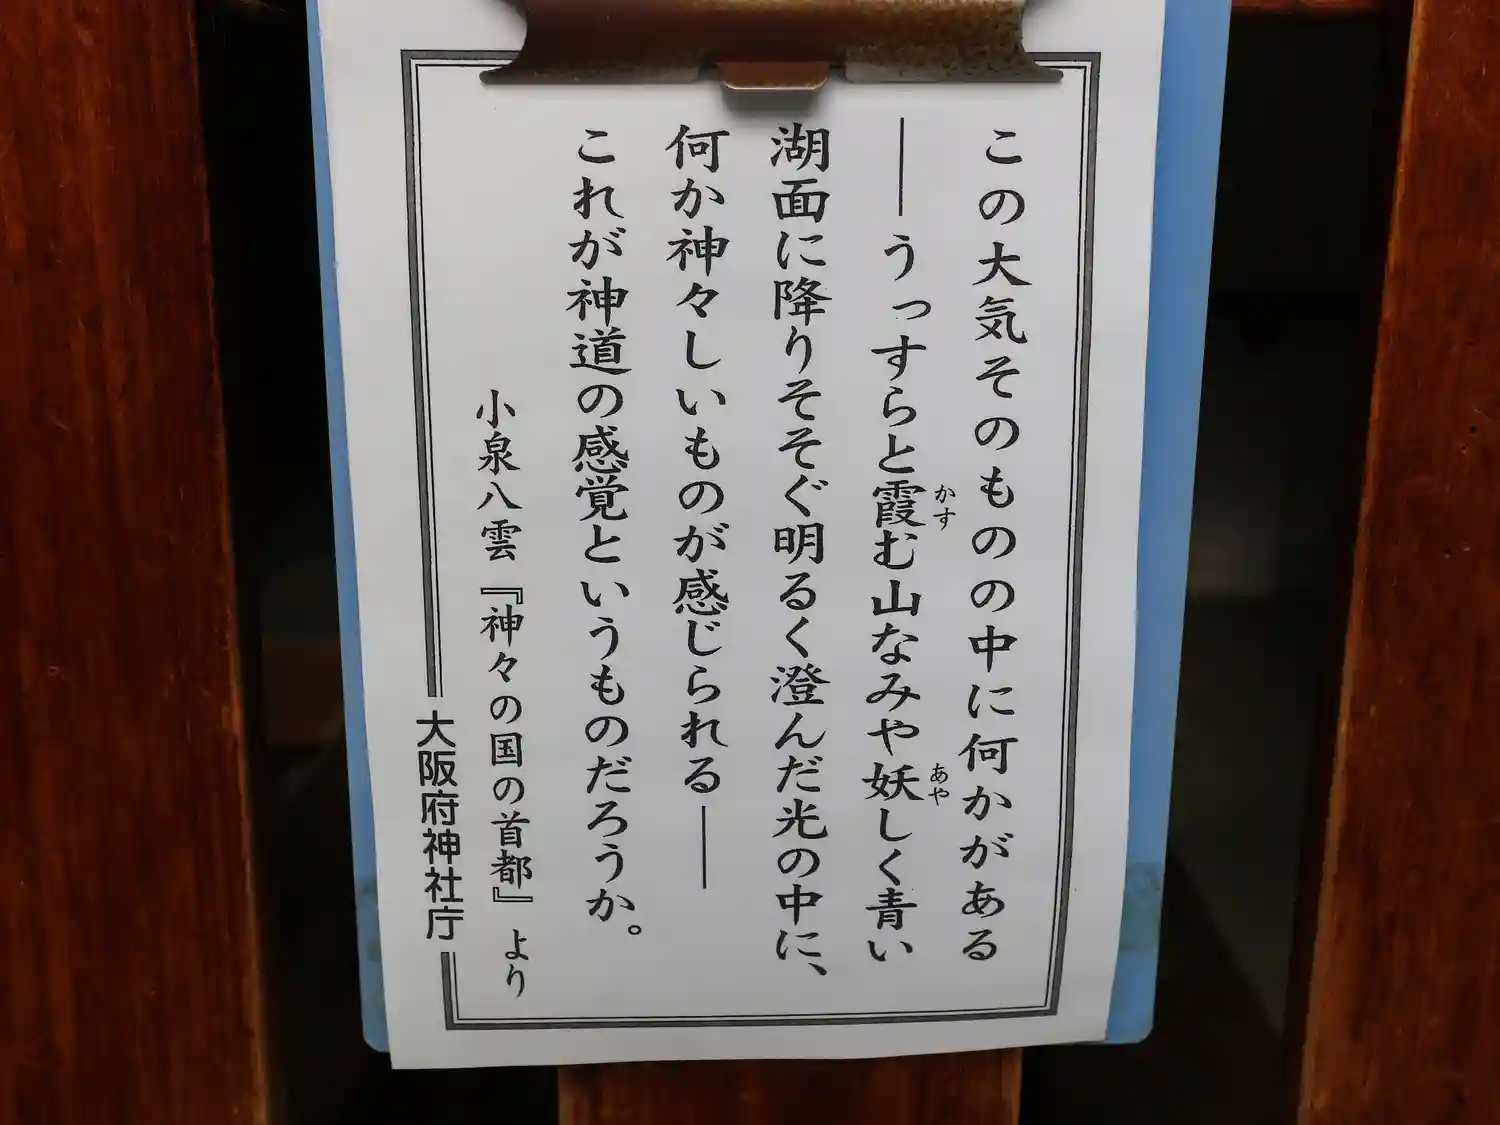 この大気そのものの中に何かがある
――うっすらと霞む山なみや妖しく青い
湖面に降りそそぐ明るく澄んだ光の中に、
何か神々しいものが感じられる――
これが神道の感覚というものだろうか。
小泉八雲『神々の国の首都』より
大阪府神社庁
かす
あや